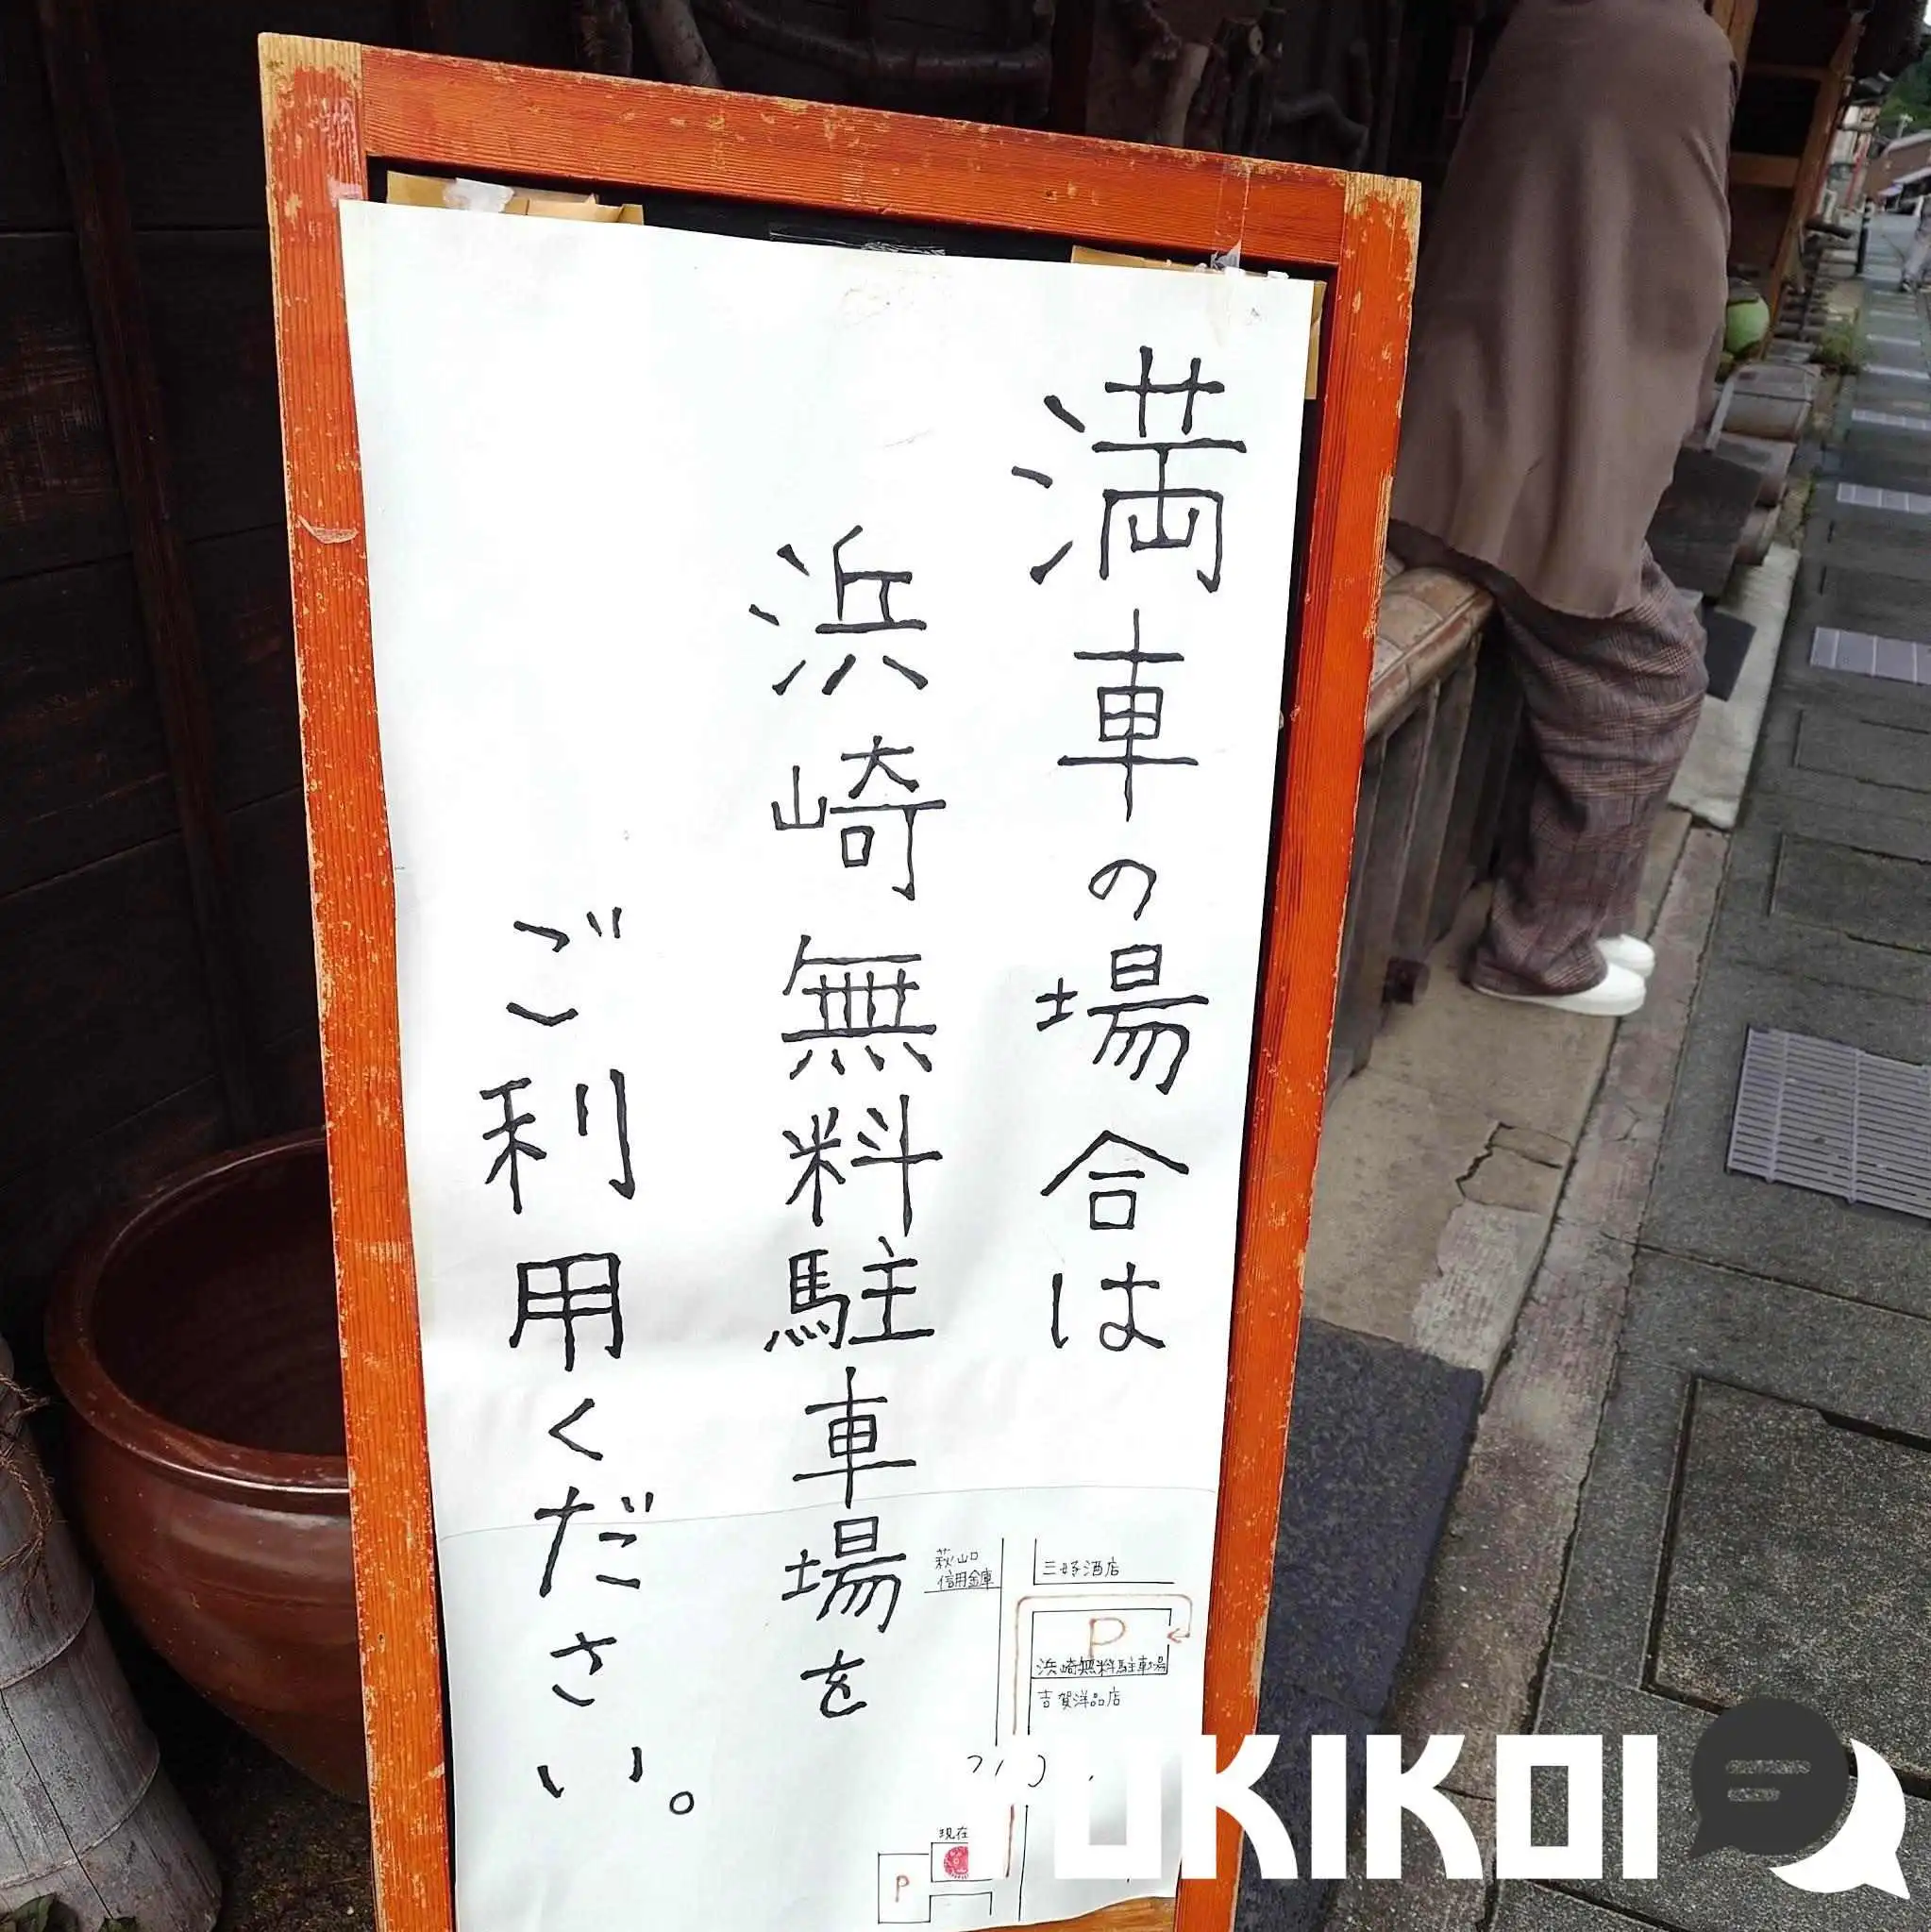 満車の場合は
浜崎無料駐車場を
ご利用ください。
萩山口
信用金庫
三好酒店
P
浜崎無料駐車場
吉賀洋品店
現在
P
UKIKOI